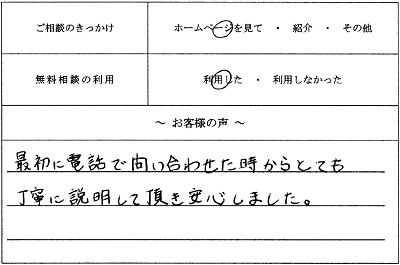 ご相談のきっかけ　ホームページを見て ・ 紹介 ・ その他
無料相談の利用　利用した ・ 利用しなかった
～ お客様の声 ～
最初に電話で問い合わせた時からとても
丁寧に説明して頂き安心しました。